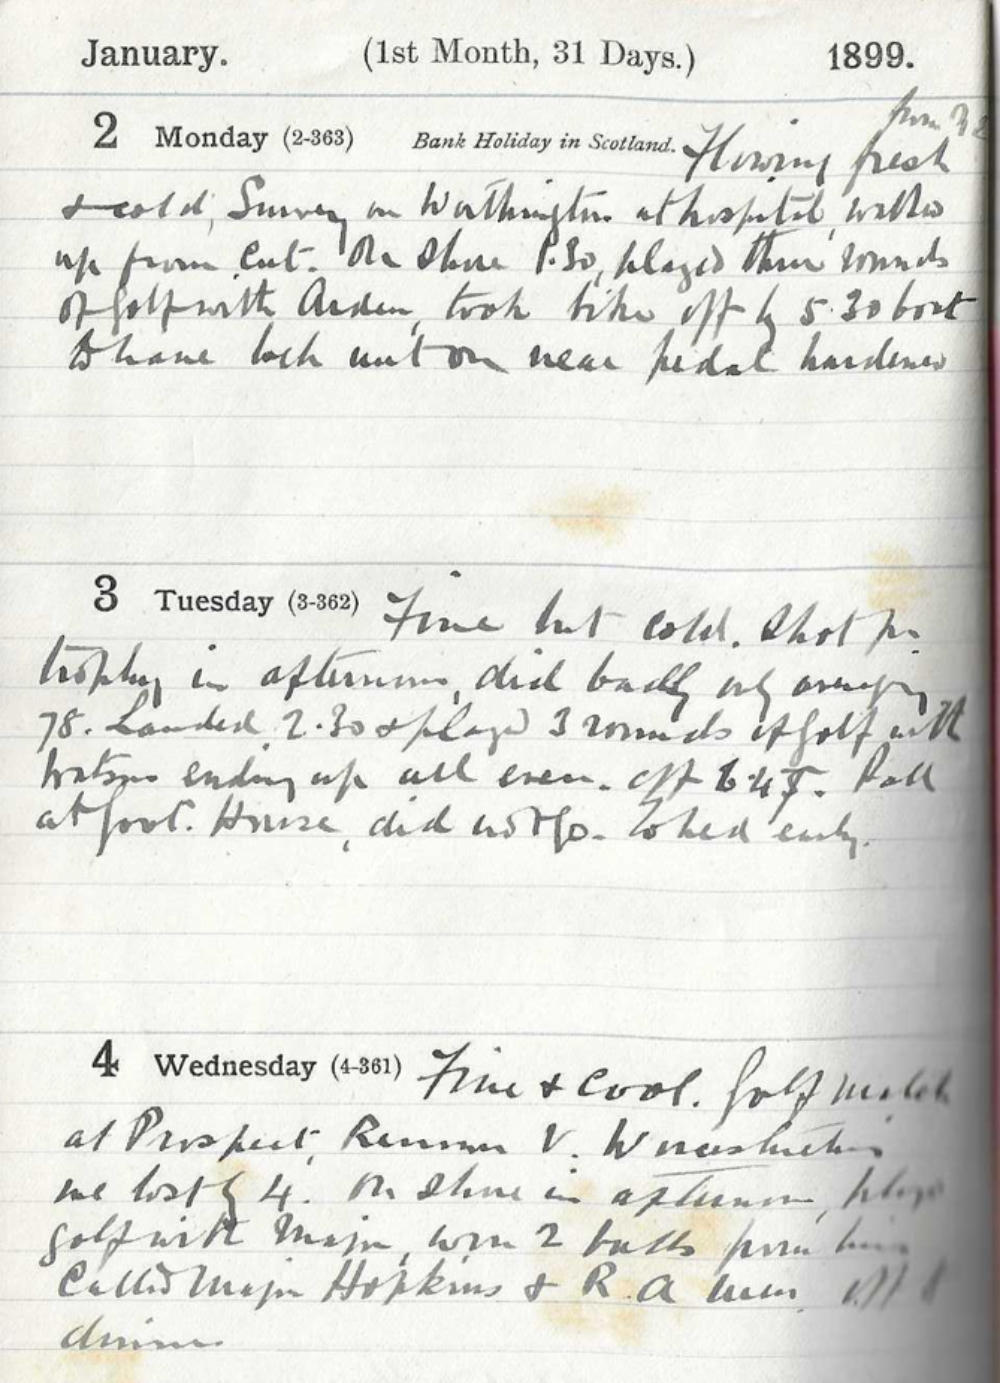 January. (1st Month, 31 Days.) 1899.
from
2 Monday (2-363) Bank Holiday in Scotland. Blowing fresh
& cold, Survey on Worthington at hospital, walked
up from Cut. On Shore 1.30, played three rounds
of golf with Arden, took bike off by 5.30 boat
to have lock nut on near pedal hardened
3 Tuesday (3-362) Fine but cold. Shot for
trophy in afternoon, did badly only averaging
78. Landed 2.30 & played 3 rounds of golf with
Watson ending up all even. off 6.45. Ball
at Govt. House, did not go. To bed early.
4 Wednesday (4-361) Fine & cool. Golf match
at Prospect, Renown V. Worcestershire
we lost by 4. On Shore in afternoon, played
golf with Major, won 2 balls from him
Called Major Hopkins & R.A mess, off
dinner